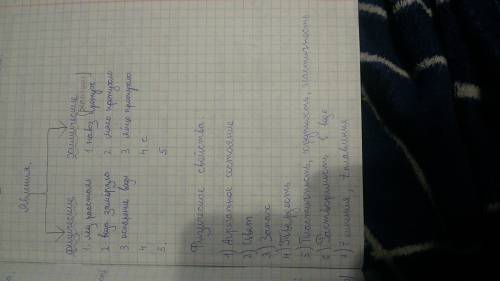 Явления.
физические химические
1. лёд растаял 1. навоз (реакция)
2. вода замерзла 2. мясо протухло
3. испарение воды 3. яйцо протухло
4 4. с
5. 5.
Физические свойства
1) Агрегатное состояние
2) Цвет
3) Запах
4) Твёрдость
5) Пластичность, хрупкость, эластичность
6) Растворимость в воде
7) t кипения, t плавления